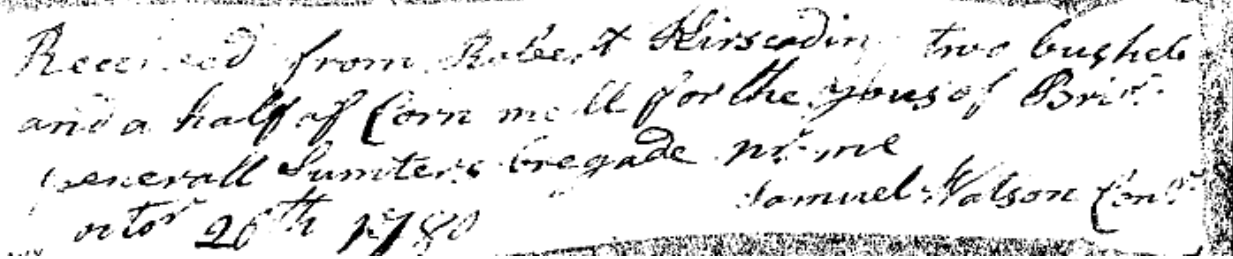 Received from Robert Kirscadin two bushels
and a half of Corn mell for the yous of Brir.
generall Sumters bregade pr. me
Samuel Watson Conr.
octor 26th 1780